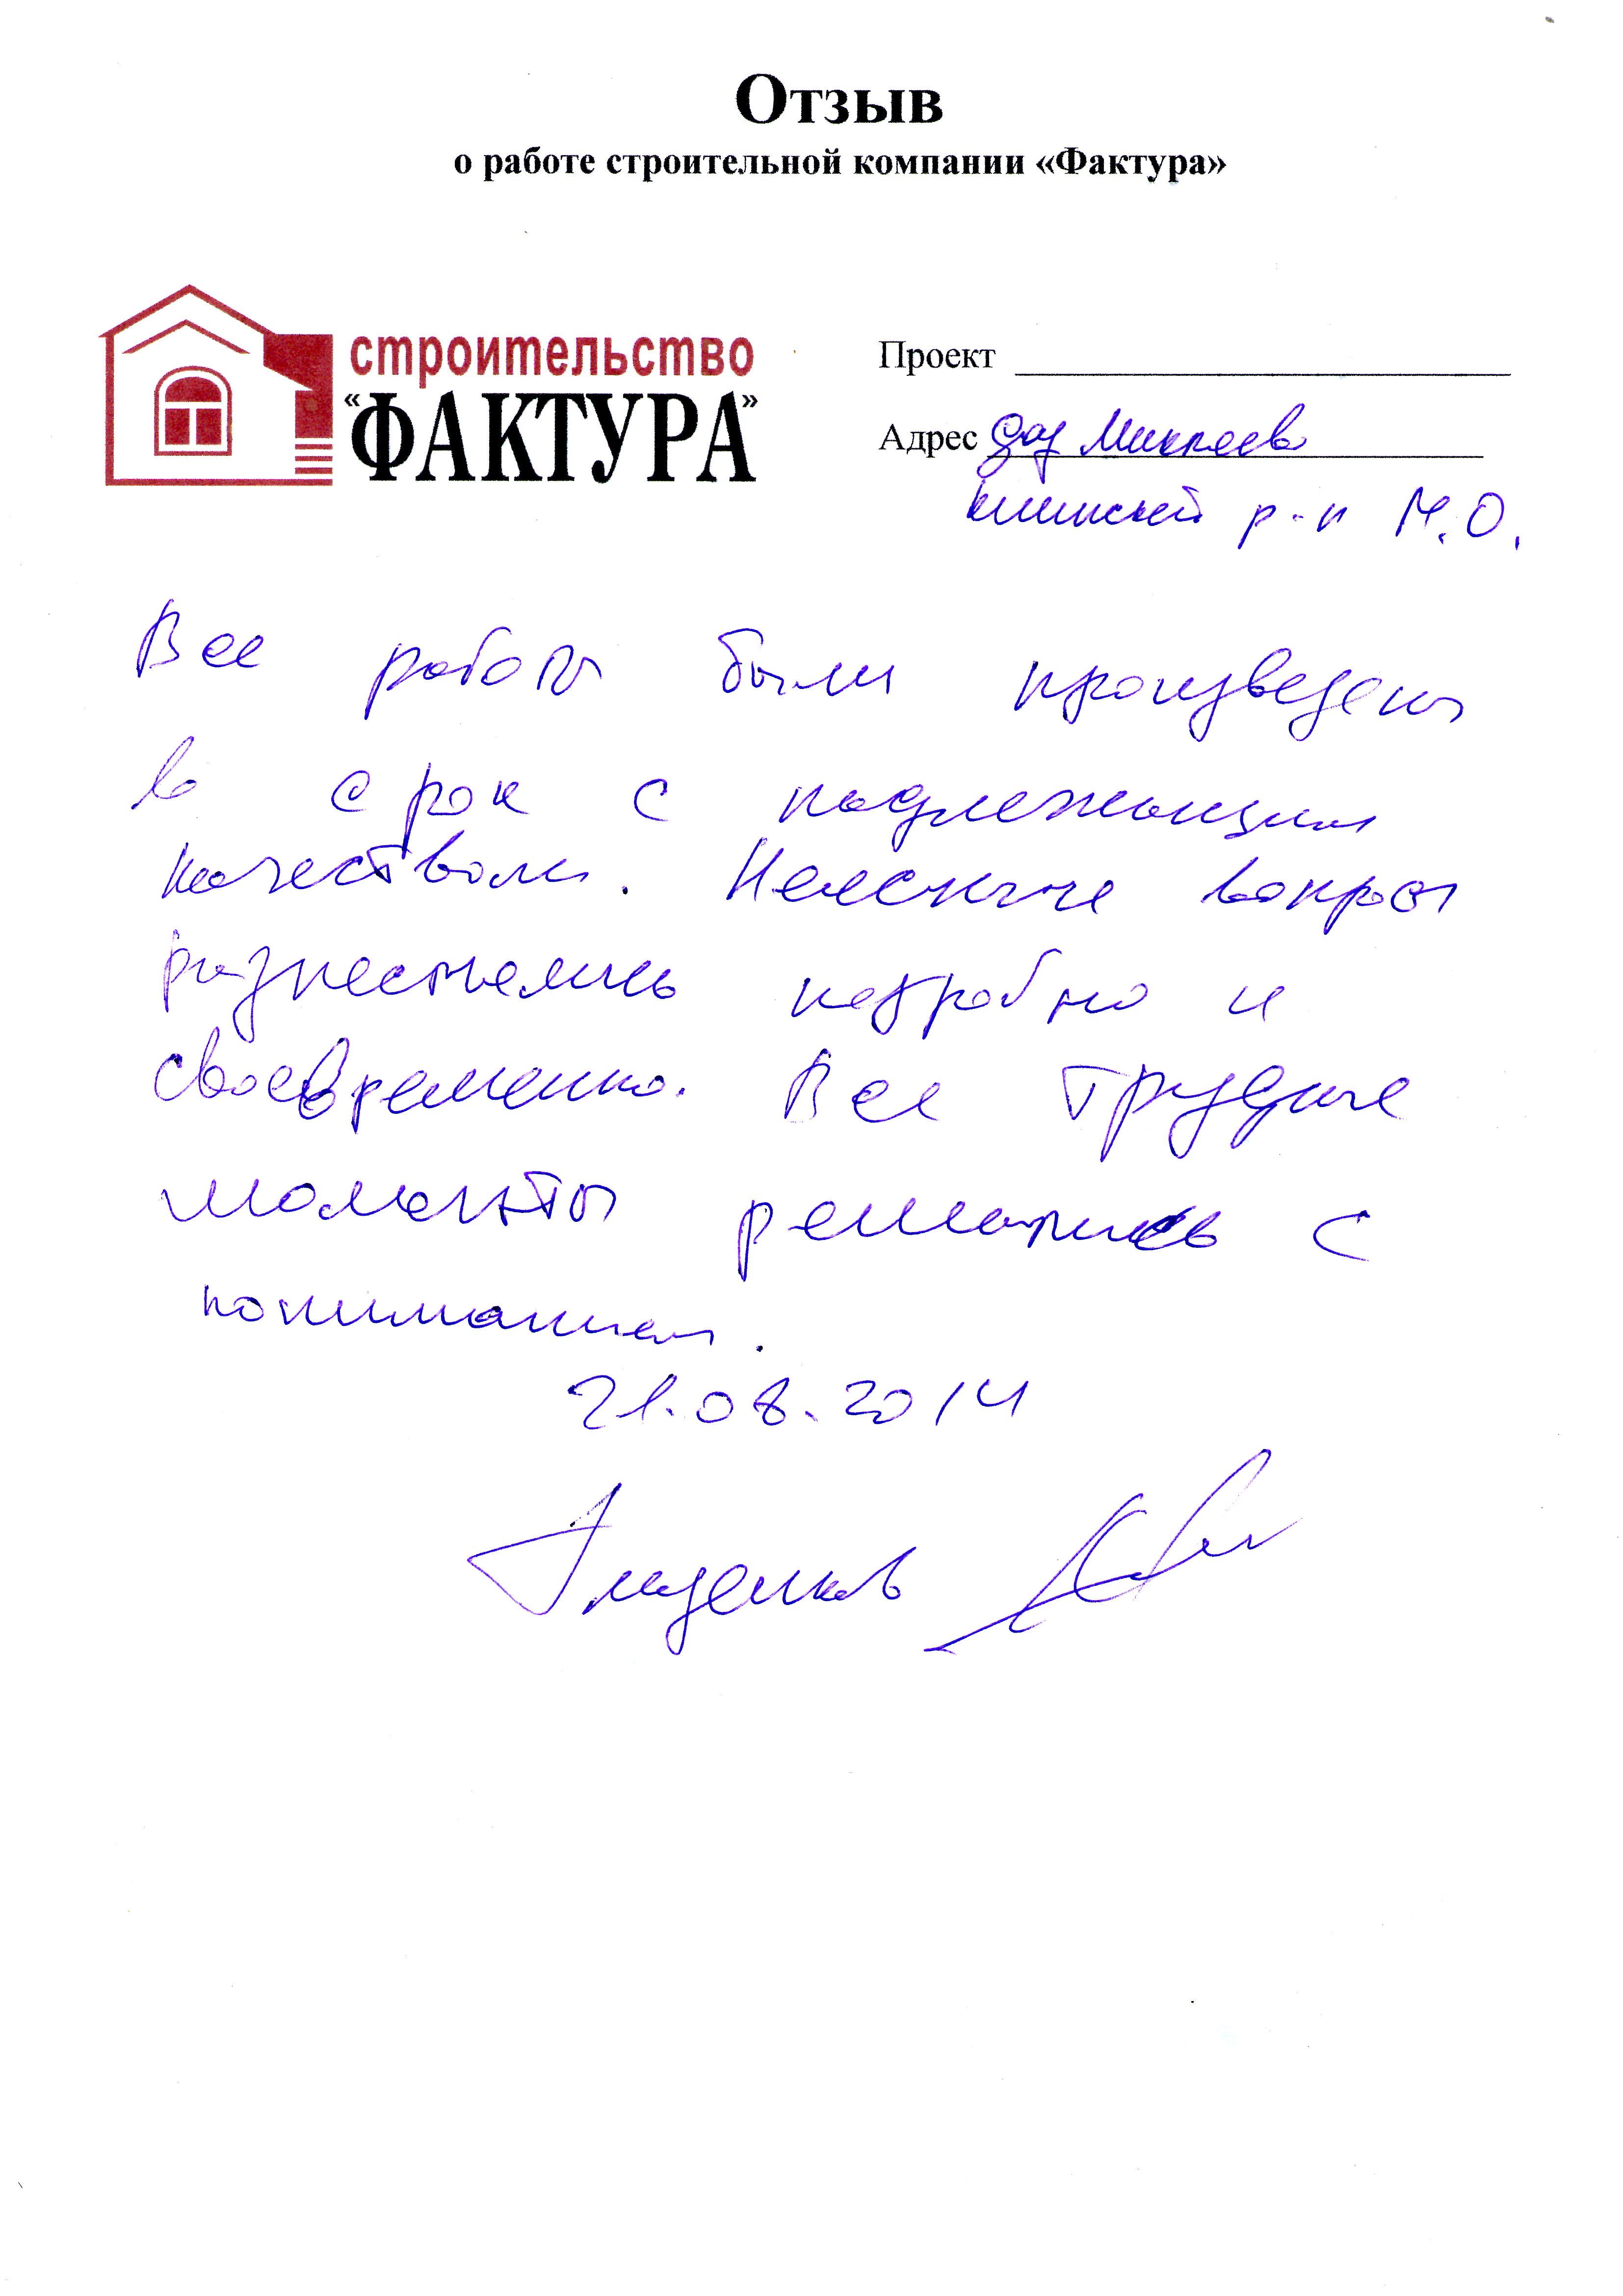 Отзыв
о работе строительной компании «Фактура»
строительство
"ФАКТУРА"
Проект
Адрес дер Микляево
Клинский р-н М.О.
Все работы были произведены
в срок с надлежащим
качеством. Неясные вопросы
разъяснялись подробно и
своевременно. Все трудные
моменты решались с
пониманием.
21.08.2014